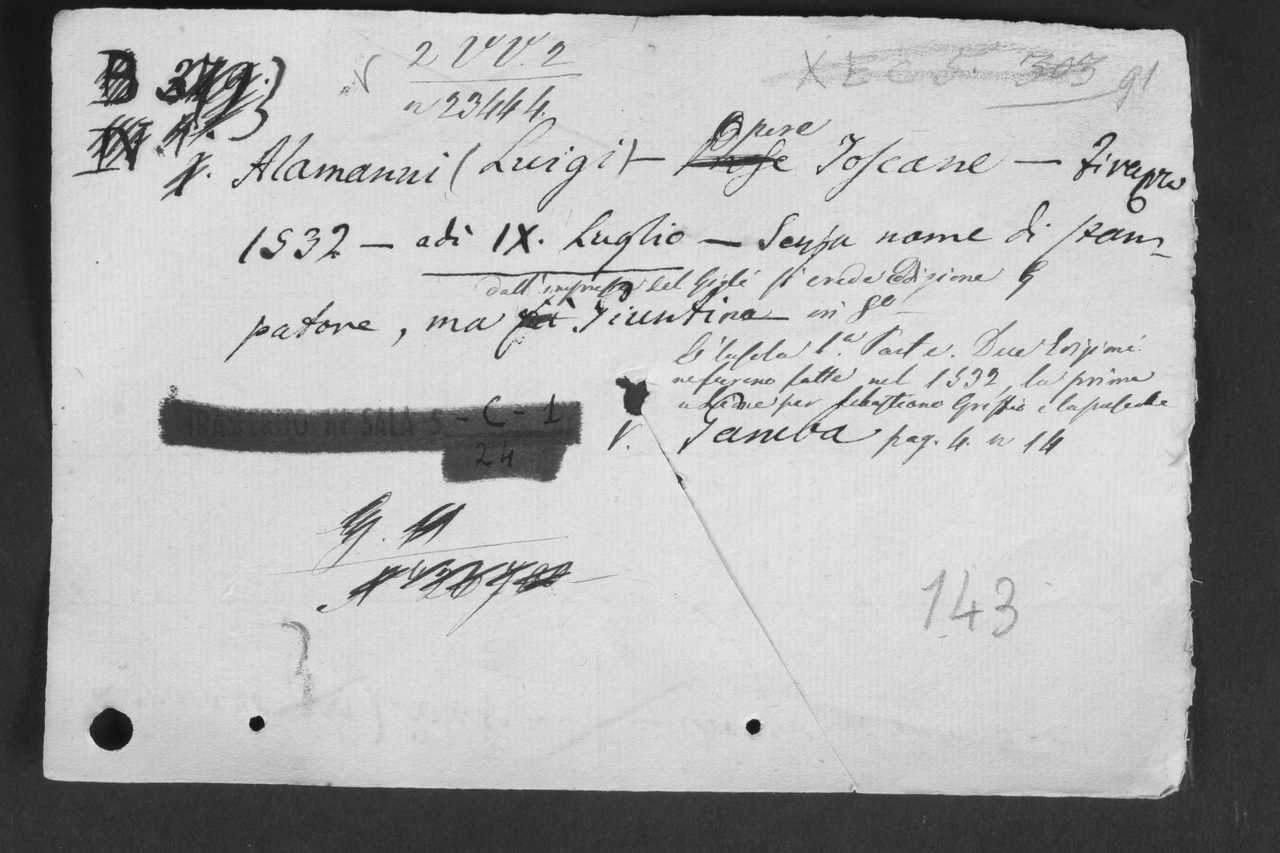 B 379.
IV. 4.
2 VV. 2
n 23444.
X E C 5. 303 91
Opere
Alamanni (Luigi) — Prose Toscane — Firenze
1532 — adi IX. Luglio — Senza nome di stam-
dall'impresa del Giglio si crede Edizione
patore, ma Giuntina in 8º
è la sola 1.ª Parte. Due Edizioni
ne furono fatte nel 1532, la prima
per Sebastiano Griffio e la presente
V. Gamba pag. 4. n 14
TRASFERITO IN SALA S - C - 1
24
143